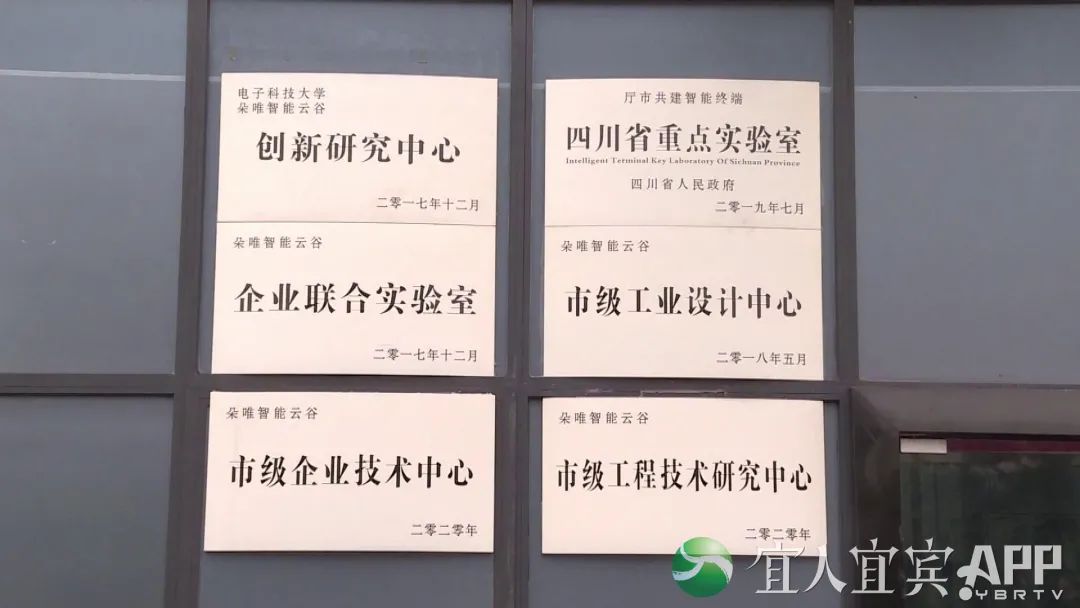 电子科技大学
朵唯智能云谷
创新研究中心
二零一七年十二月
厅市共建智能终端
四川省重点实验室
Intelligent Terminal Key Laboratory Of Sichuan Province
四川省人民政府
二零一九年七月
朵唯智能云谷
企业联合实验室
二零一七年十二月
朵唯智能云谷
市级工业设计中心
二零一八年五月
朵唯智能云谷
市级企业技术中心
二零二零年
朵唯智能云谷
市级工程技术研究中心
二零二零年
宜人宜宾APP
YBRTV